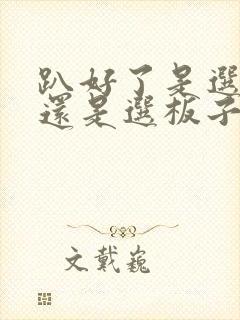 趴好了是選
還是選板子
文戴巍